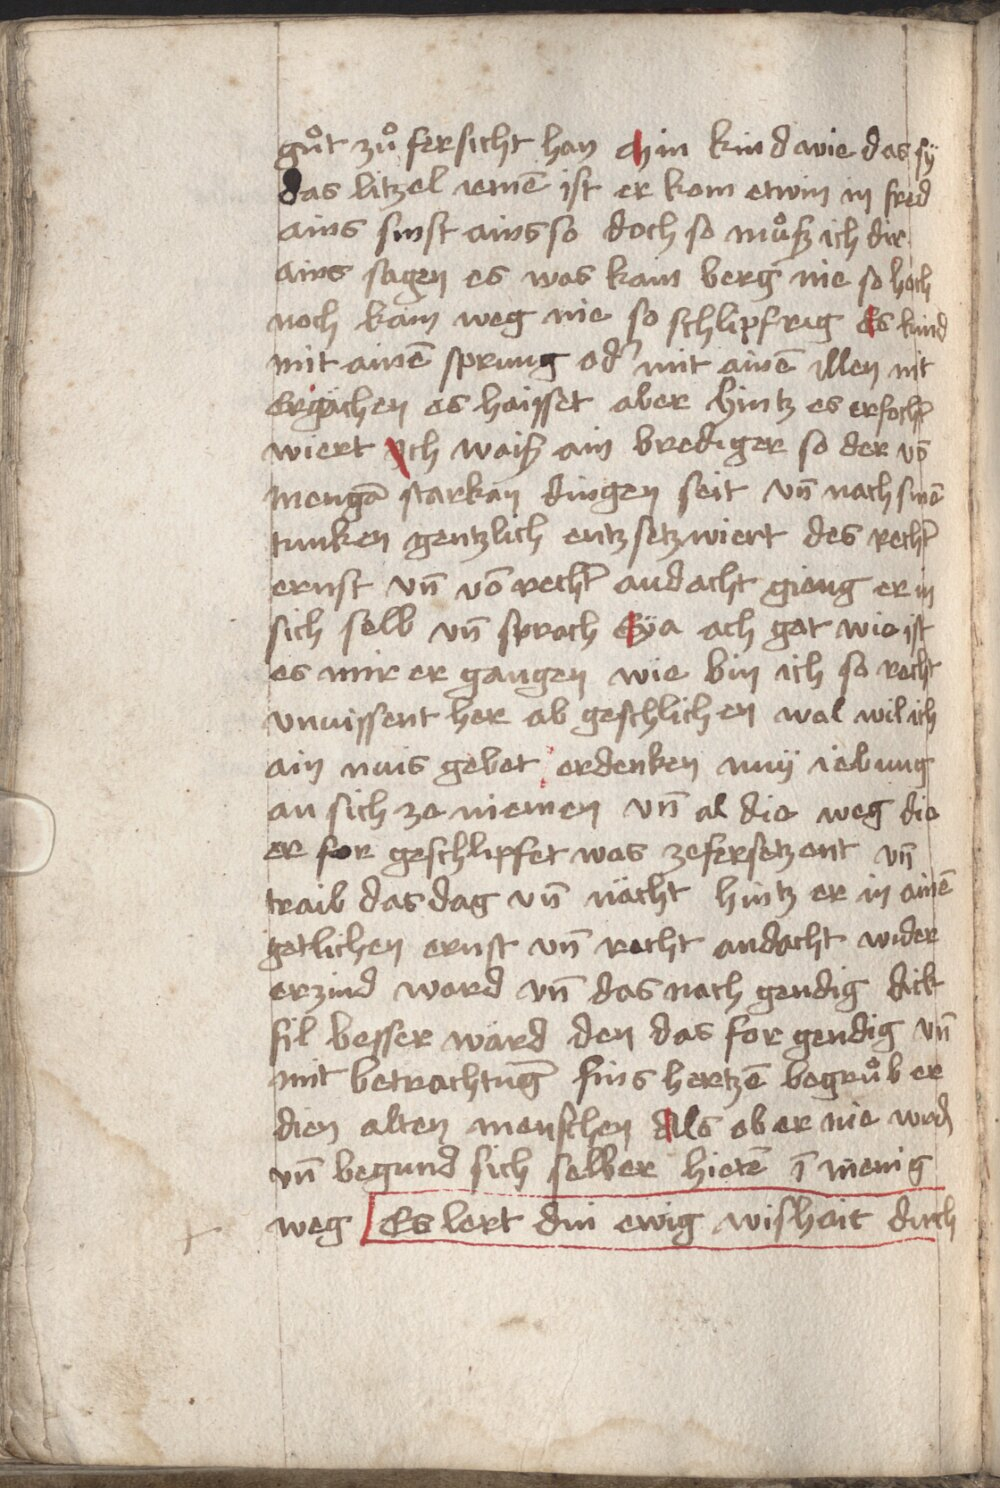 gůt zů fersicht han Min kind wie das sÿ
das litzel iemē ist er kam etwin in fred
ains sinst ains so doch so můß ich dir
ains sagen es was kain berg nie so hoch
noch kain weg nie so schlipfrig Es kind
mit ainē sprung od' mit ainē illen nit
ergächen es haisset aber hintz es erfocht'
wiert Ich waiß ain brediger so der vō
mengā starkan dingen seit vn̄ nach sinē
tunken gentzlich entzsetz wiert des recht'
ernst vn̄ vō recht' andacht gieng er in
sich selb vn̄ sprach Eÿa ach got wie ist
es mir er gangen wie bin ich so recht
vnuissent her ab geschlichen wal wil ich
ain nuis gebet erdenken nuÿ iebung
an sich ze niemen vn̄ al die weg die
er for geschlipfet was ze fersetzent vn̄
traib das dag vn̄ nächt hintz er in ainē
getlichen ernst vn̄ recht andacht wider
erzind ward vn̄ das nach gendig dick
fil besser ward den das for gendig vn̄
mit betrachtūg sins hertzē begrůb er
dien alten menschen Als ob er nie wurd
vn̄ begund sich selber hietē ī menig
weg Es lert din ewig wishait durch